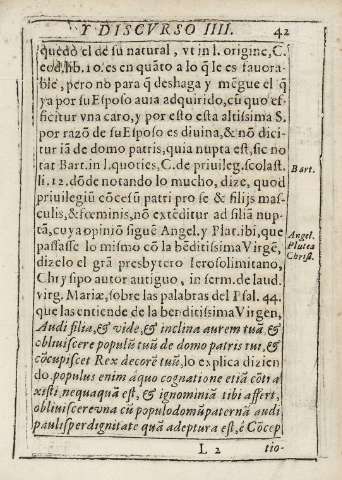 Y DISCVRSO IIII. 42
quedò el de su natural, vt in l. origine, C.
eod. lib. 10. es en quãto a lo q̃ le es fauora-
ble, pero no para q̃ deshaga y mẽgue el q̃
ya por su Esposo auia adquirido, cũ quo ef-
ficitur vna caro, y por esto esta altissima S.
por razõ de su Esposo es diuina, & nõ dici-
tur iã de domo patris, quia nupta est, sic no
tat Bart. in l. quoties, C. de priuileg. scolast.
li. 12. dõde notando lo mucho, dize, quod
Bart.
priuilegiũ cõcesũ patri pro se & filijs mas-
culis, & fœminis, nõ extẽditur ad filiã nup-
tã, cuya opinió siguẽ Angel. y Plat. ibi, que
passasse lo mismo cõ la bẽditissima Virgẽ,
Angel.
Platea
Chris.
dizelo el grã presbytero Ierosolimitano,
Chrysipo autor antiguo, in serm. de laud.
virg. Mariæ, sobre las palabras del Psal. 44.
que las entiende de la benditissima Virgen,
Audi filia, & vide, & inclina aurem tuã, &
obliuiscere populũ tuũ de domo patris tui, &
cõcupiscet Rex decorẽ tuũ, lo explica dizien
do, populus enim áquo cognatione etiã cõtra
xisti, nequaquã est, & ignominiã tibi affert,
obliuiscere vna cũ populo domũ paternã audi
paulisper dignitate quã adeptura est, é Cõcep
L 2 tio-